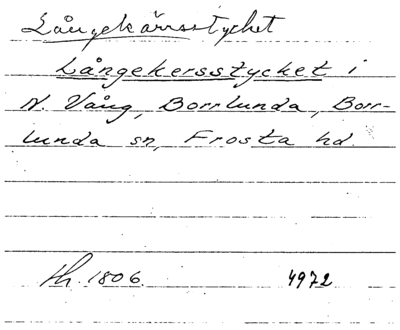 Långekärrsstycket
Långekersstycket i
N. Vång, Borrlunda, Borr-
lunda sn, Frosta hd.
Lh. 1806. 4972